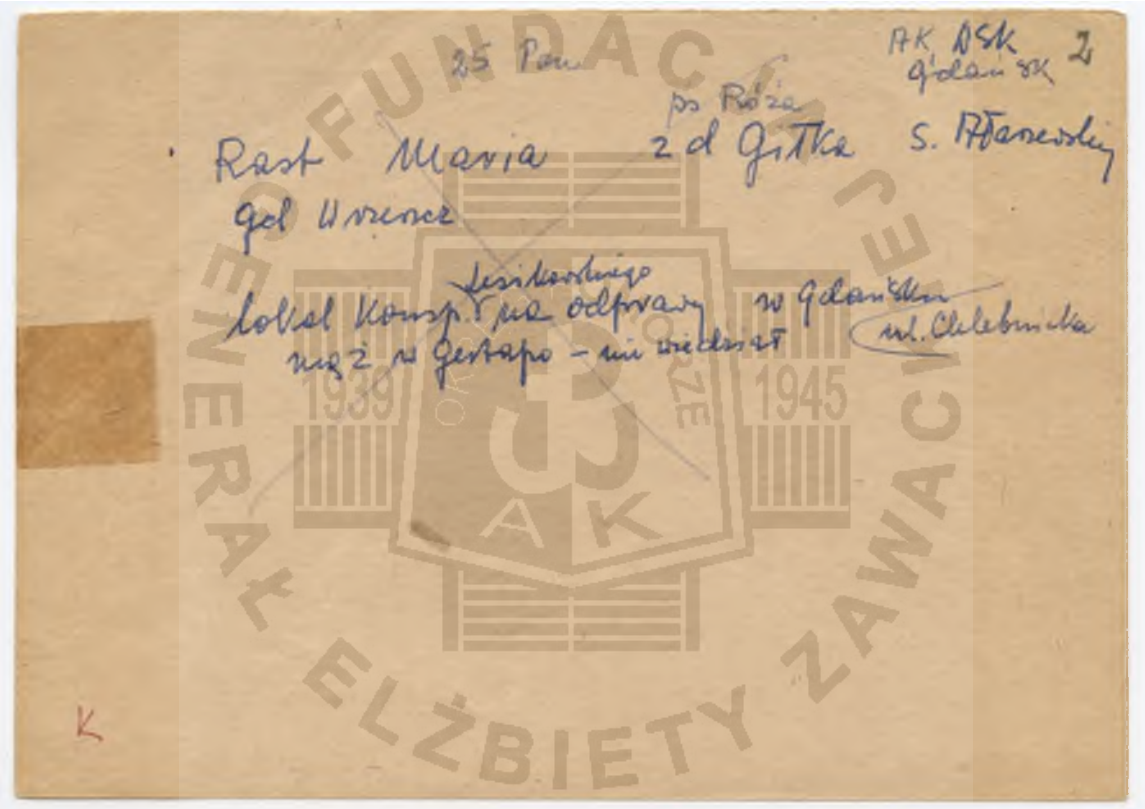 25 Pom
AK DSK 2
Gdańsk
ps Róża
Rast Maria z d Gitka S.
Gd Wrzeszcz
Lesikowskiego
lokal Konsp. na odprawy w Gdańsku
mąż w Gestapo – nie wiedział ul. Chlebnicka
K
FUNDACJA GENERAŁ ELŻBIETY ZAWACKIEJ
1939 1945
AK